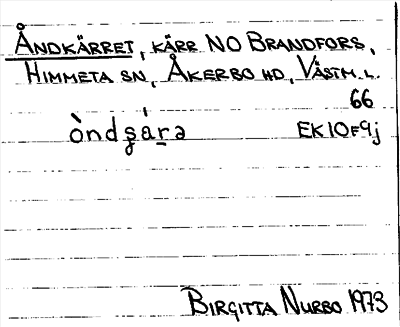 ÅNDKÄRRET, KÄRR NO BRANDFORS,
HIMMETA SN, ÅKERBO HD, VÄSTM. L.
66
òndşá̱rə EK 10F9j
BIRGITTA NURBO 1973